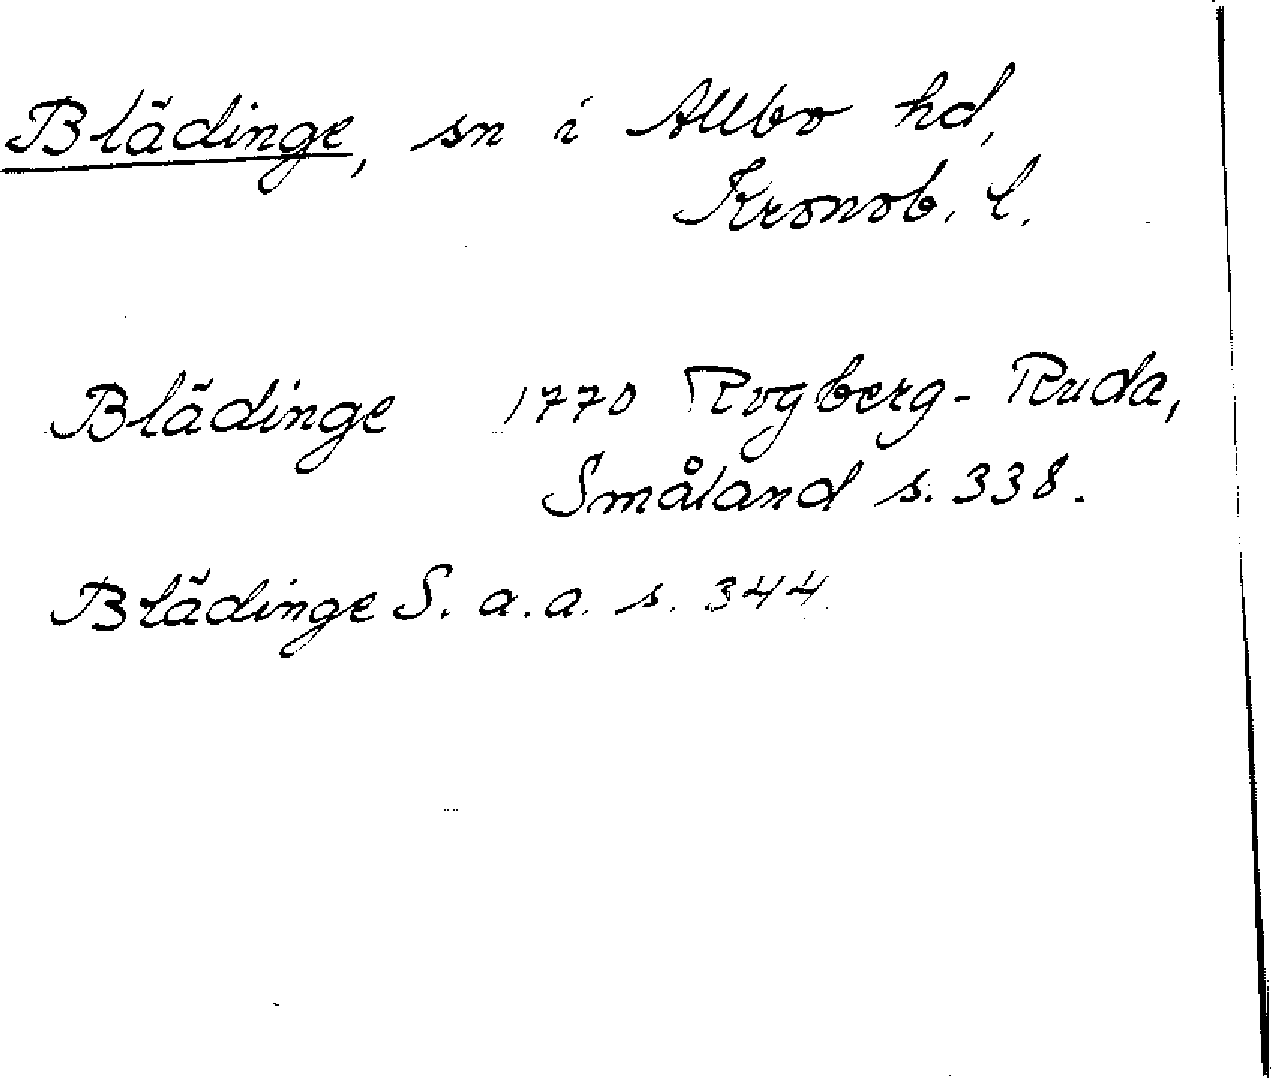 Blädinge, sn i Allbo hd,
Kronob. l.
Blädinge 1770 Rogberg-Ruda,
Småland s. 338.
Blädinge S. a. a. s. 344